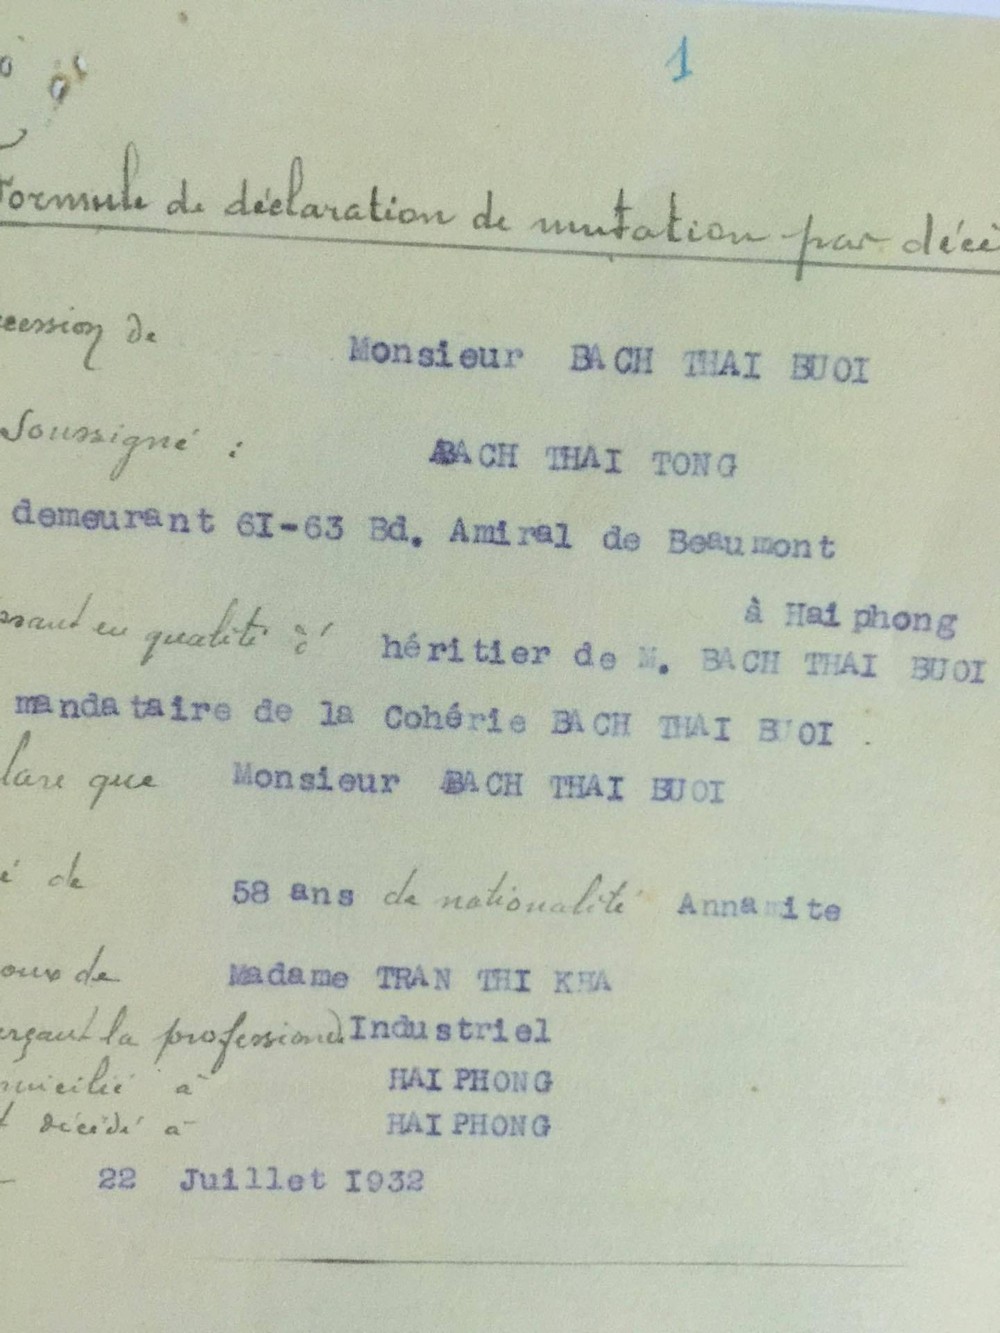 1
Formule de déclaration de mutation par décè
ccession de Monsieur BACH THAI BUOI
Soussigné : BACH THAI TONG
demeurant 6I-63 Bd. Amiral de Beaumont
à Haiphong
ssant en qualité d' héritier de M. BACH THAI BUOI
mandataire de la Cohérie BACH THAI BUOI .
lare que Monsieur BACH THAI BUOI
é de 58 ans de nationalité Annamite
oux de Madame TRAN THI KHA
erçant la profession d Industriel
micilié à HAIPHONG
t décédé à HAIPHONG
22 Juillet I932